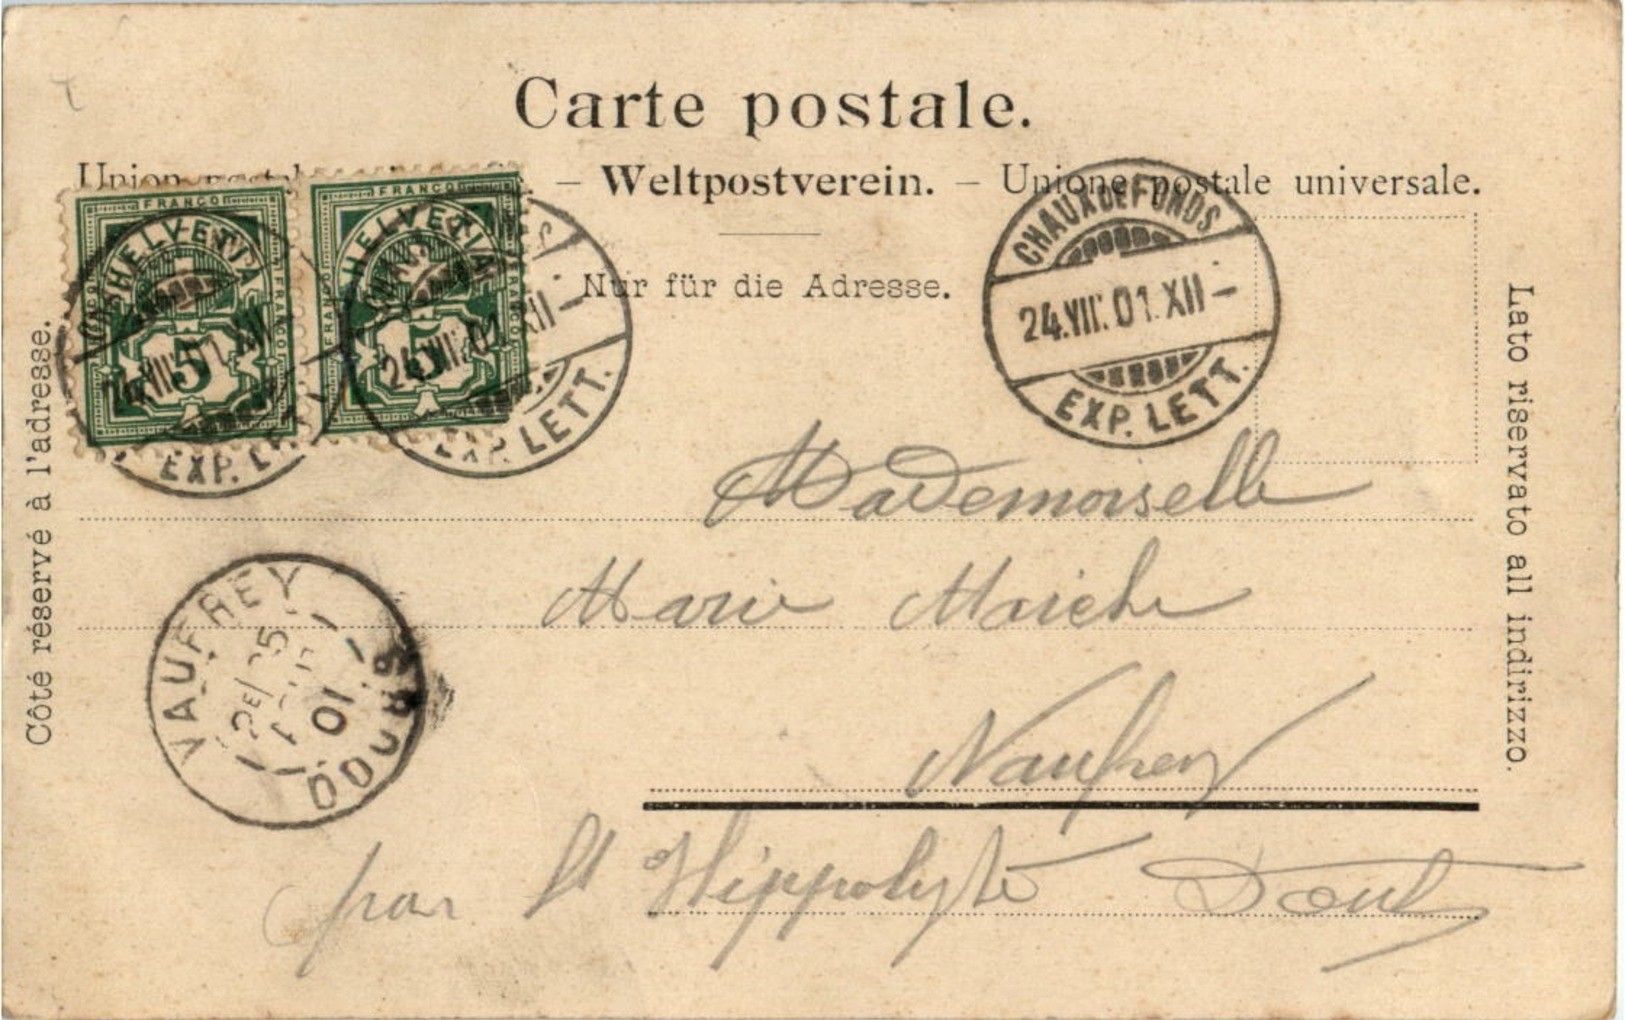 Carte postale.
— Weltpostverein. — Unione postale universale.
Nur für die Adresse.
Côté réservé à l'adresse.
Lato riservato all indirizzo.
FRANCO
HELVETIA
5
EXP. LETT.
FRANCO
HELVETIA
5
24.VII.01.XII—
EXP. LETT.
CHAUX DE FONDS
24.VII.01.XII—
EXP. LETT.
Mademoiselle
Marie Maiche
Vaufrey
par St Hippolyte Doubs
VAUFREY
25
01
DOUBS